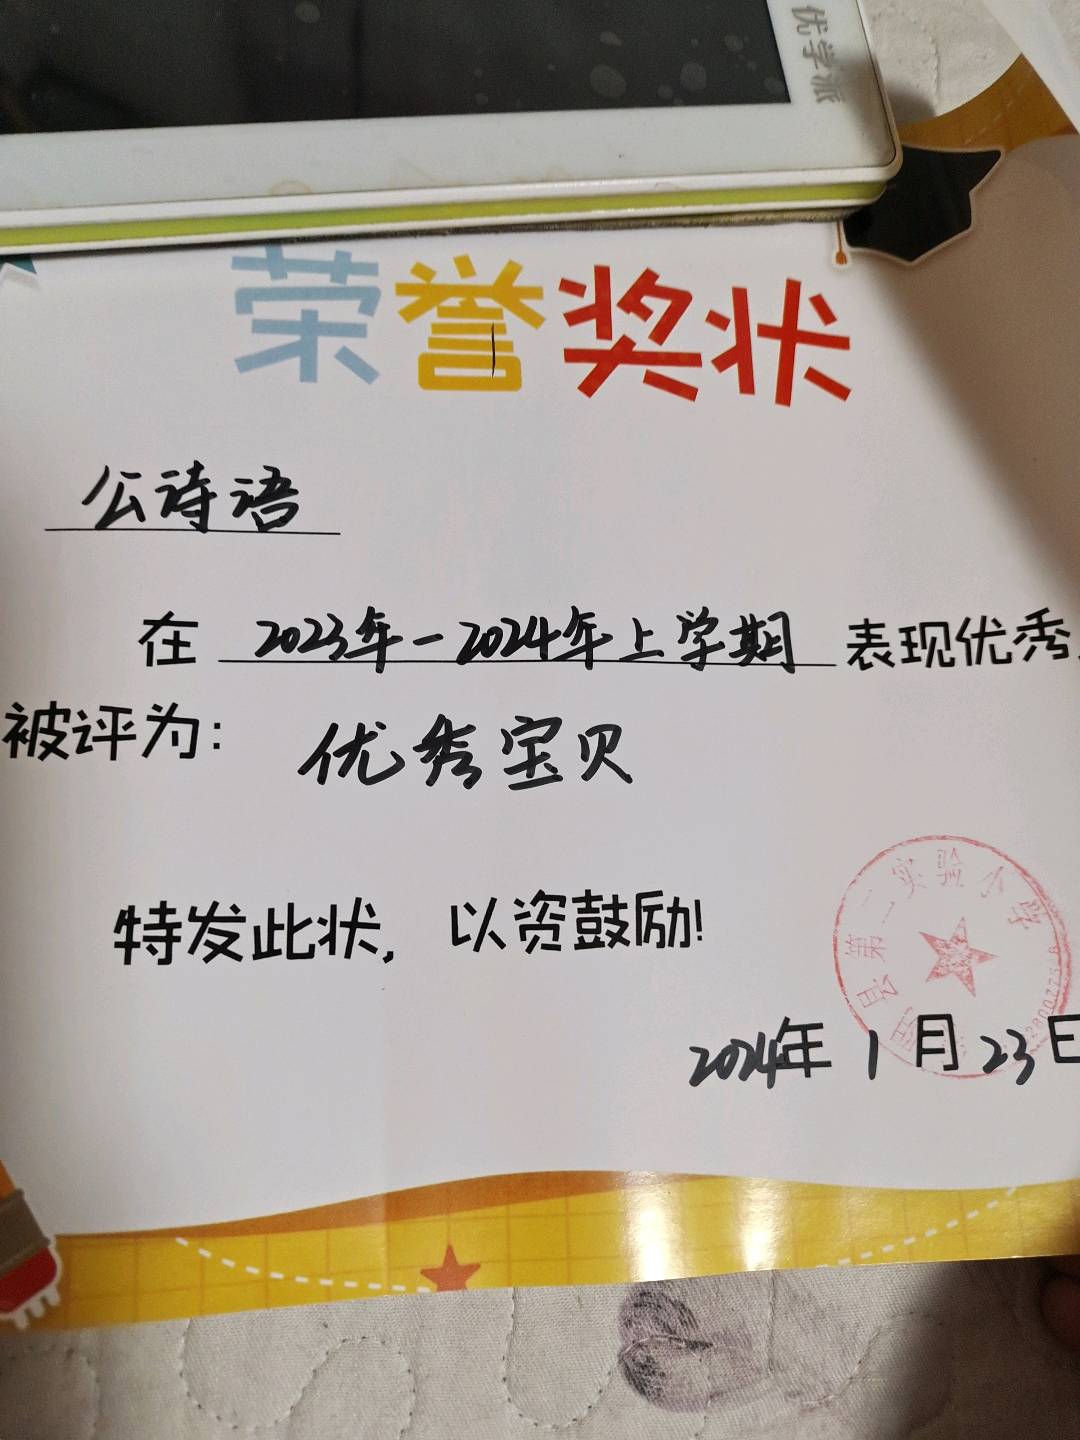 优学派
荣誉奖状
公诗语
在 2023年-2024年上学期 表现优秀
被评为： 优秀宝贝
特发此状， 以资鼓励！
县第二实验小学
2024年 1 月 23 日